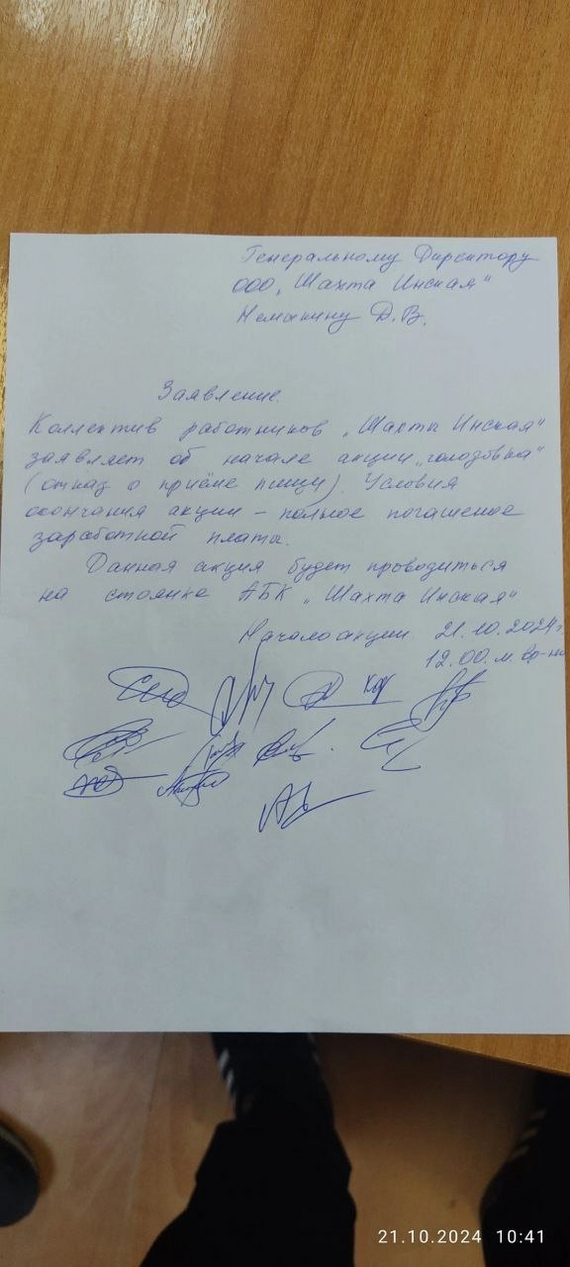 Генеральному Директору
ООО „Шахта Инская"
Немыкину Д.В.
Заявление.
Коллектив работников „Шахты Инская"
заявляет об начале акции „голодовка"
(отказ о приёме пищи). Условия
окончания акции – полное погашение
заработной платы.
Данная акция будет проводиться
на стоянке АБК „Шахта Инская"
Начало акции 21.10.2024г.
12.00. м. вр-ни
21.10.2024 10:41